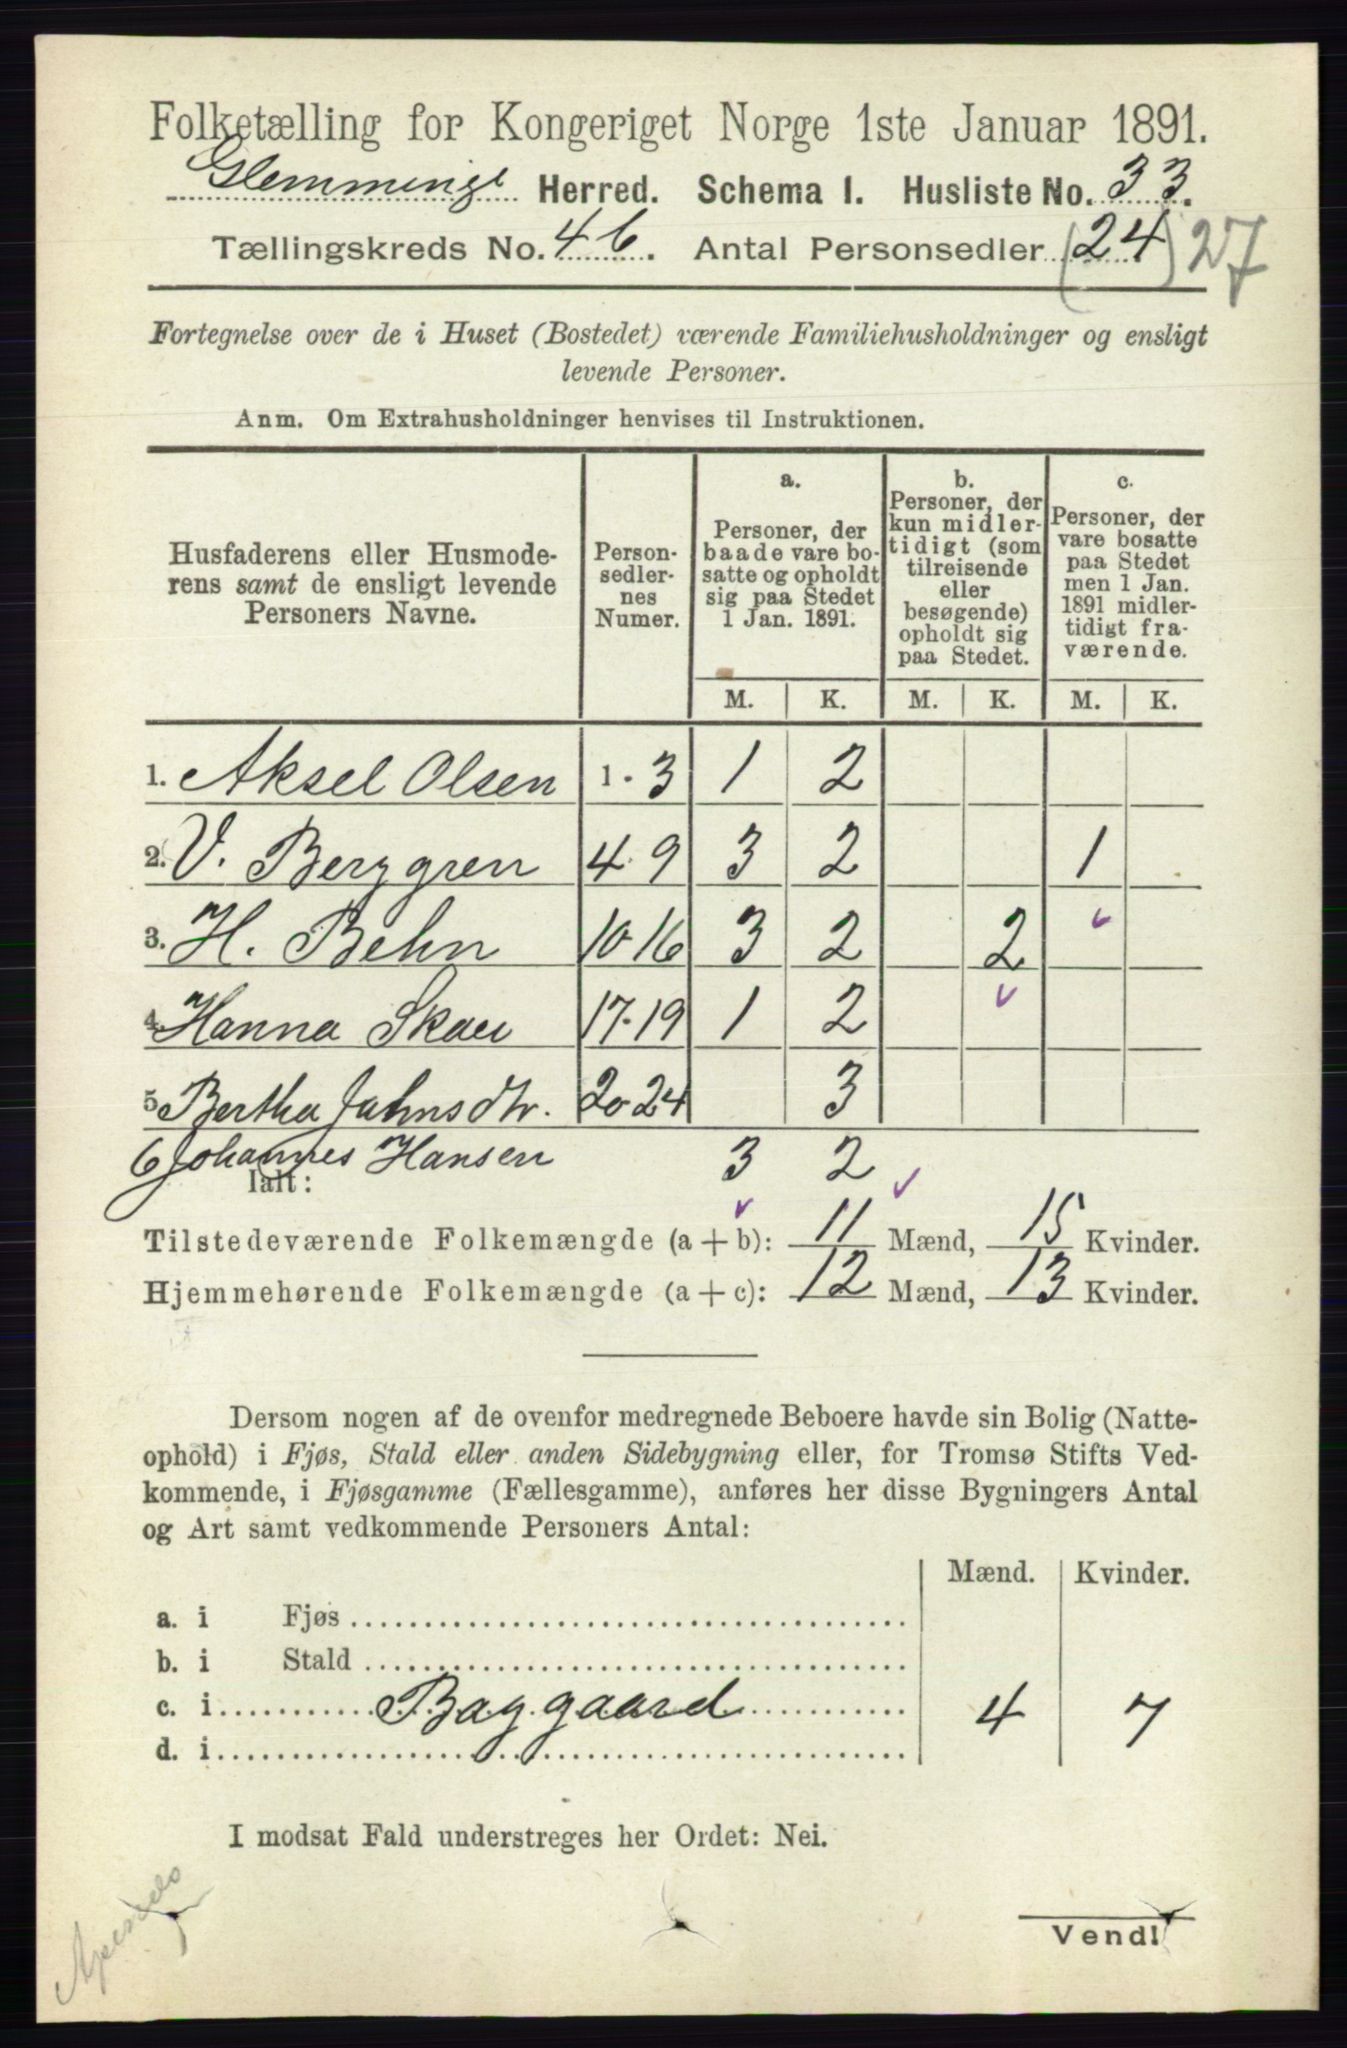 Folketælling for Kongeriget Norge 1ste Januar 1891.
Glemminge Herred. Schema I. Husliste No. 33.
Tællingskreds No. 46. Antal Personsedler (24) 27
Fortegnelse over de i Huset (Bostedet) værende Familiehusholdninger og ensligt
levende Personer.
Anm. Om Extrahusholdninger henvises til Instruktionen.
Husfaderens eller Husmode-
rens samt de ensligt levende
Personers Navne.
Person-
sedler-
nes
Numer.
a.
Personer, der
baade vare bo-
satte og opholdt
sig paa Stedet
1 Jan. 1891.
b.
Personer, der
kun midler-
tidigt (som
tilreisende
eller
besøgende)
opholdt sig
paa Stedet.
c.
Personer, der
vare bosatte
paa Stedet
men 1 Jan.
1891 midler-
tidigt fra-
værende.
M. K. M. K. M. K.
1. Aksel Olsen 1-3 1 2
2. V. Berggren 4-9 3 2 1
3. H. Behn 10-16 3 2 2
4. Hanna Skau 17-19 1 2
5 Bertha Jahnsdtr. 20-24 3
6 Johannes Hansen 3 2
Ialt:
Tilstedeværende Folkemængde (a + b): 11 Mænd, 15 Kvinder.
Hjemmehørende Folkemængde (a + c): 12 Mænd, 13 Kvinder.
Dersom nogen af de ovenfor medregnede Beboere havde sin Bolig (Natte-
ophold) i Fjøs, Stald eller anden Sidebygning eller, for Tromsø Stifts Ved-
kommende, i Fjøsgamme (Fællesgamme), anføres her disse Bygningers Antal
og Art samt vedkommende Personers Antal:
Mænd. Kvinder.
a. i Fjøs
b. i Stald
c. i Baggaard 4 7
d. i
I modsat Fald understreges her Ordet: Nei.
Vend!